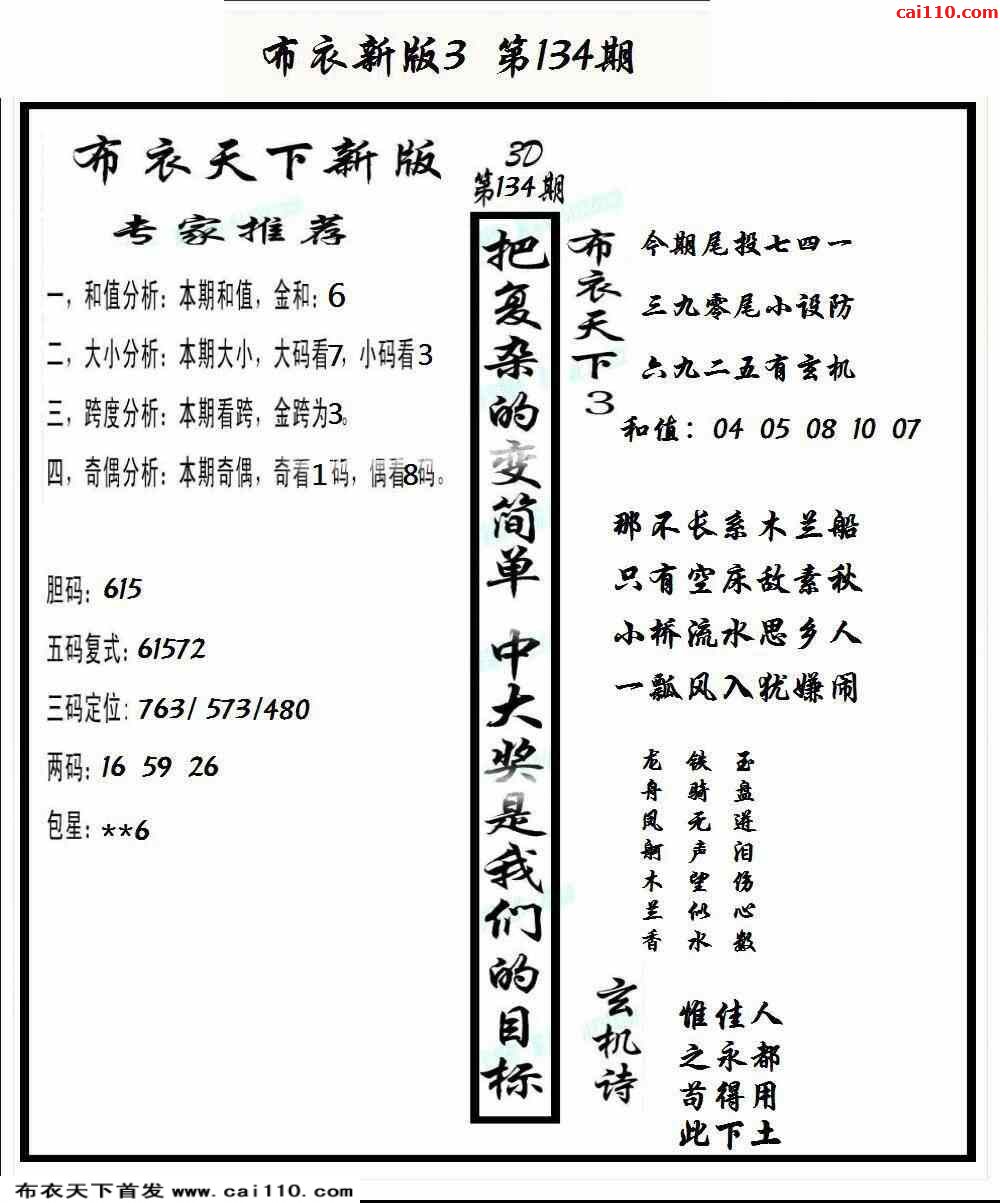 cai110.com
布衣新版3 第134期
布衣天下新版
专家推荐
一，和值分析：本期和值，金和：6
二，大小分析：本期大小，大码看7，小码看3
三，跨度分析：本期看跨，金跨为3。
四，奇偶分析：本期奇偶，奇看1码，偶看8码。
胆码：615
五码复式：61572
三码定位：763/ 573/480
两码：16 59 26
包星：**6
3D
第134期
把复杂的变简单 中大奖是我们的目标
布衣天下3
今期尾投七四一
三九零尾小设防
六九二五有玄机
和值：04 05 08 10 07
那不长系木兰船
只有空床敌素秋
小桥流水思乡人
一瓢风入犹嫌闹
玉盘迸泪伤心数
铁骑无声望似水
龙舟凤舸木兰香
玄机诗
惟佳人
之永都
苟得用
此下土
布衣天下首发 www.cai110.com